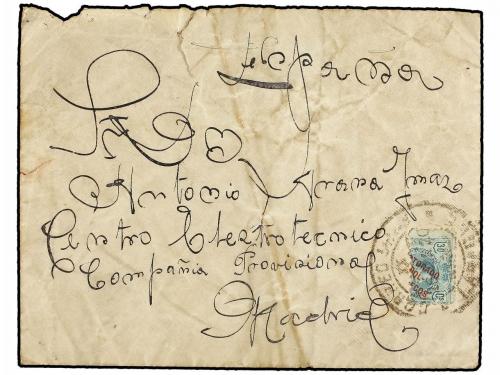 España
Sr Do
Antonio Arana Imaz
Centro Electrotecnico
Compañia Provisional
Madrid